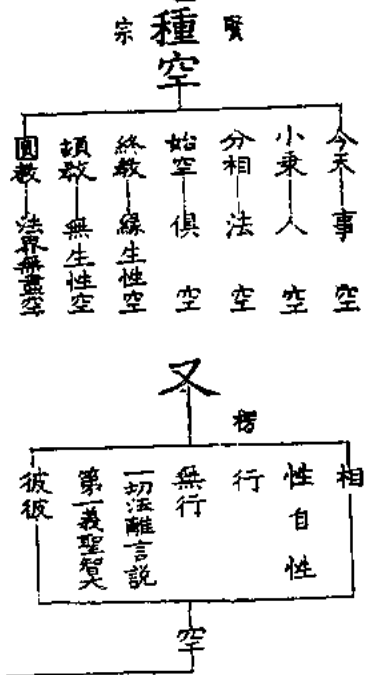 賢宗
種空
今天事空
小乘人空
分相法空
始空俱空
終教緣生性空
頓教無生性空
圓教法界無盡空
又
楞
相
性自性
行
無行
一切法離言說
第一義聖智大
彼彼
空